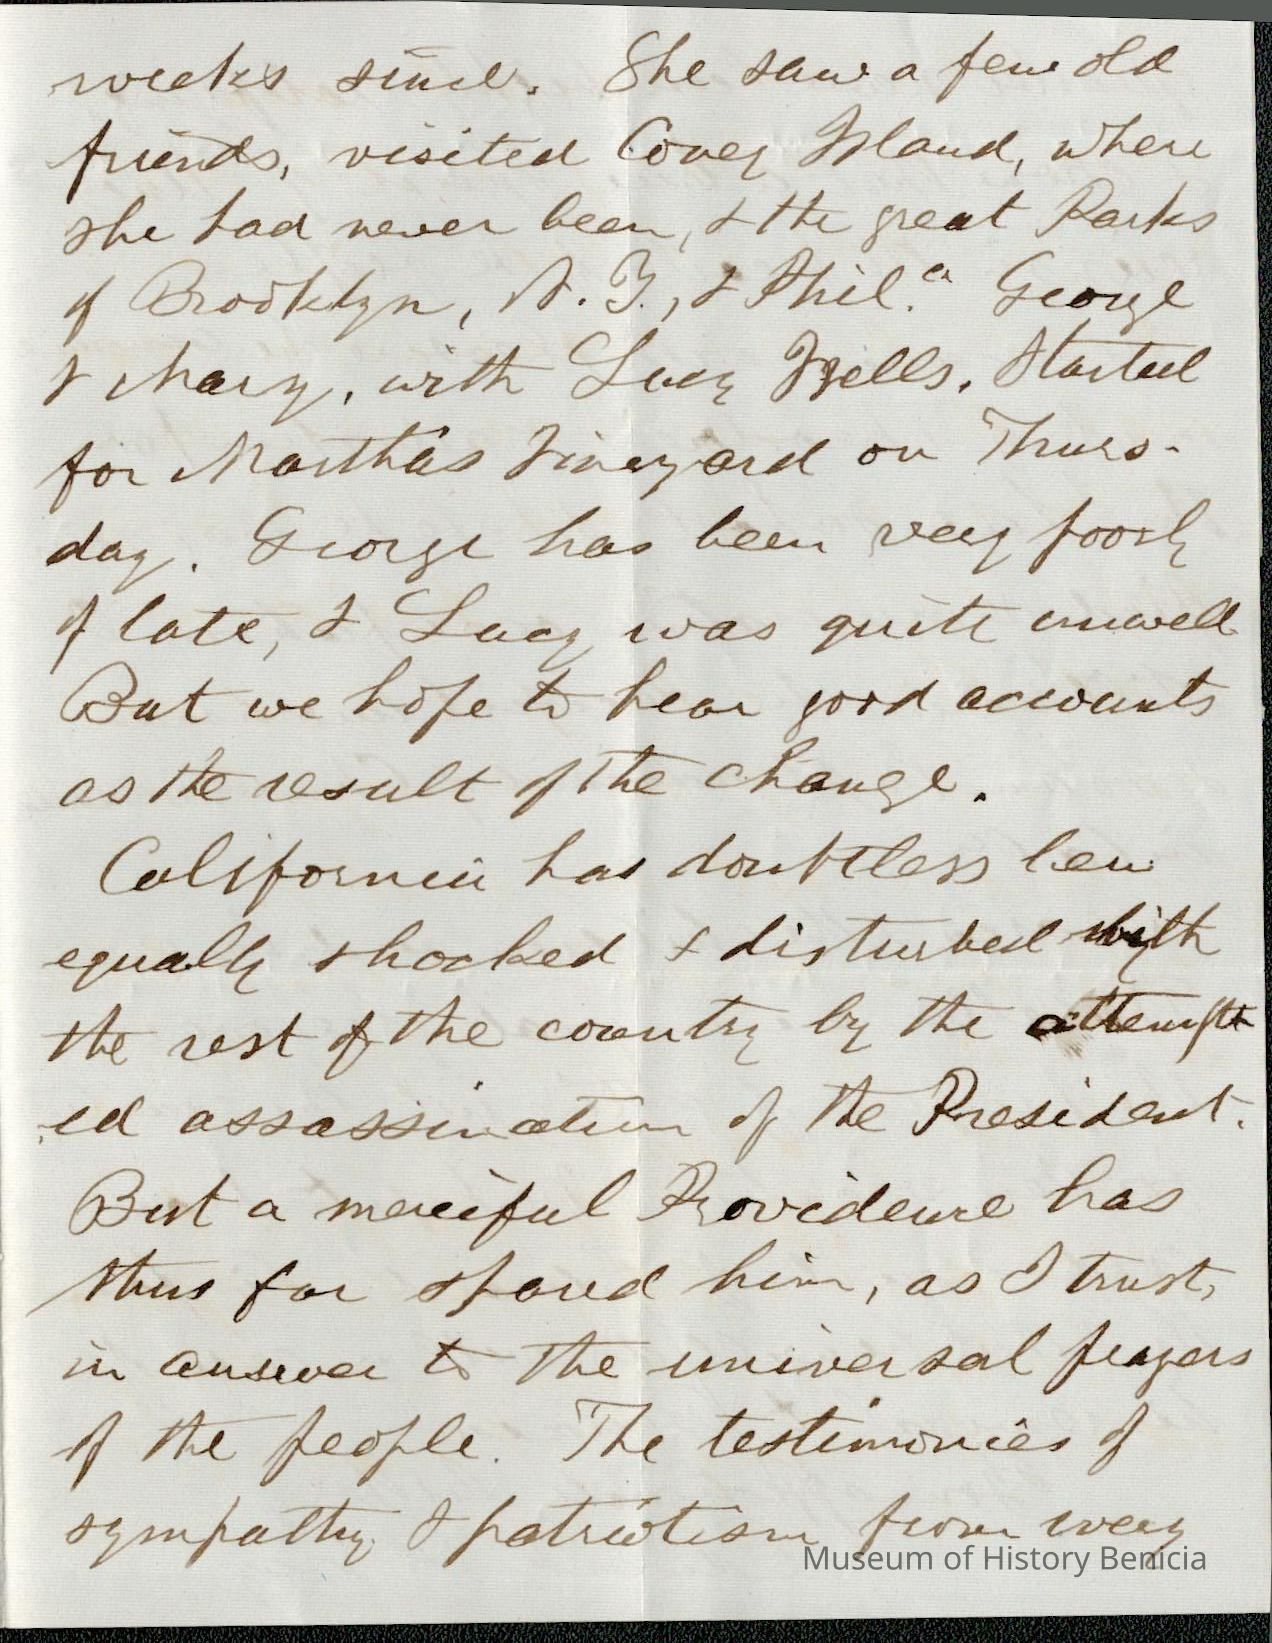 weeks since. She saw a few old
friends, visited Coney Island, where
she had never been, & the great Parks
of Brooklyn, N. Y., & Phil.a George
& Mary, with Lucy Wells, started
for Martha's Vineyard on Thurs-
day. George has been very poorly
of late, & Lucy was quite unwell
But we hope to hear good accounts
as the result of the change.
California has doubtless been
equally shocked & disturbed with
the rest of the country by the attempt
ed assassination of the President.
But a merciful Providence has
thus far spared him, as I trust,
in answer to the universal prayers
of the people. The testimonies of
sympathy & patriotism from every
Museum of History Benicia